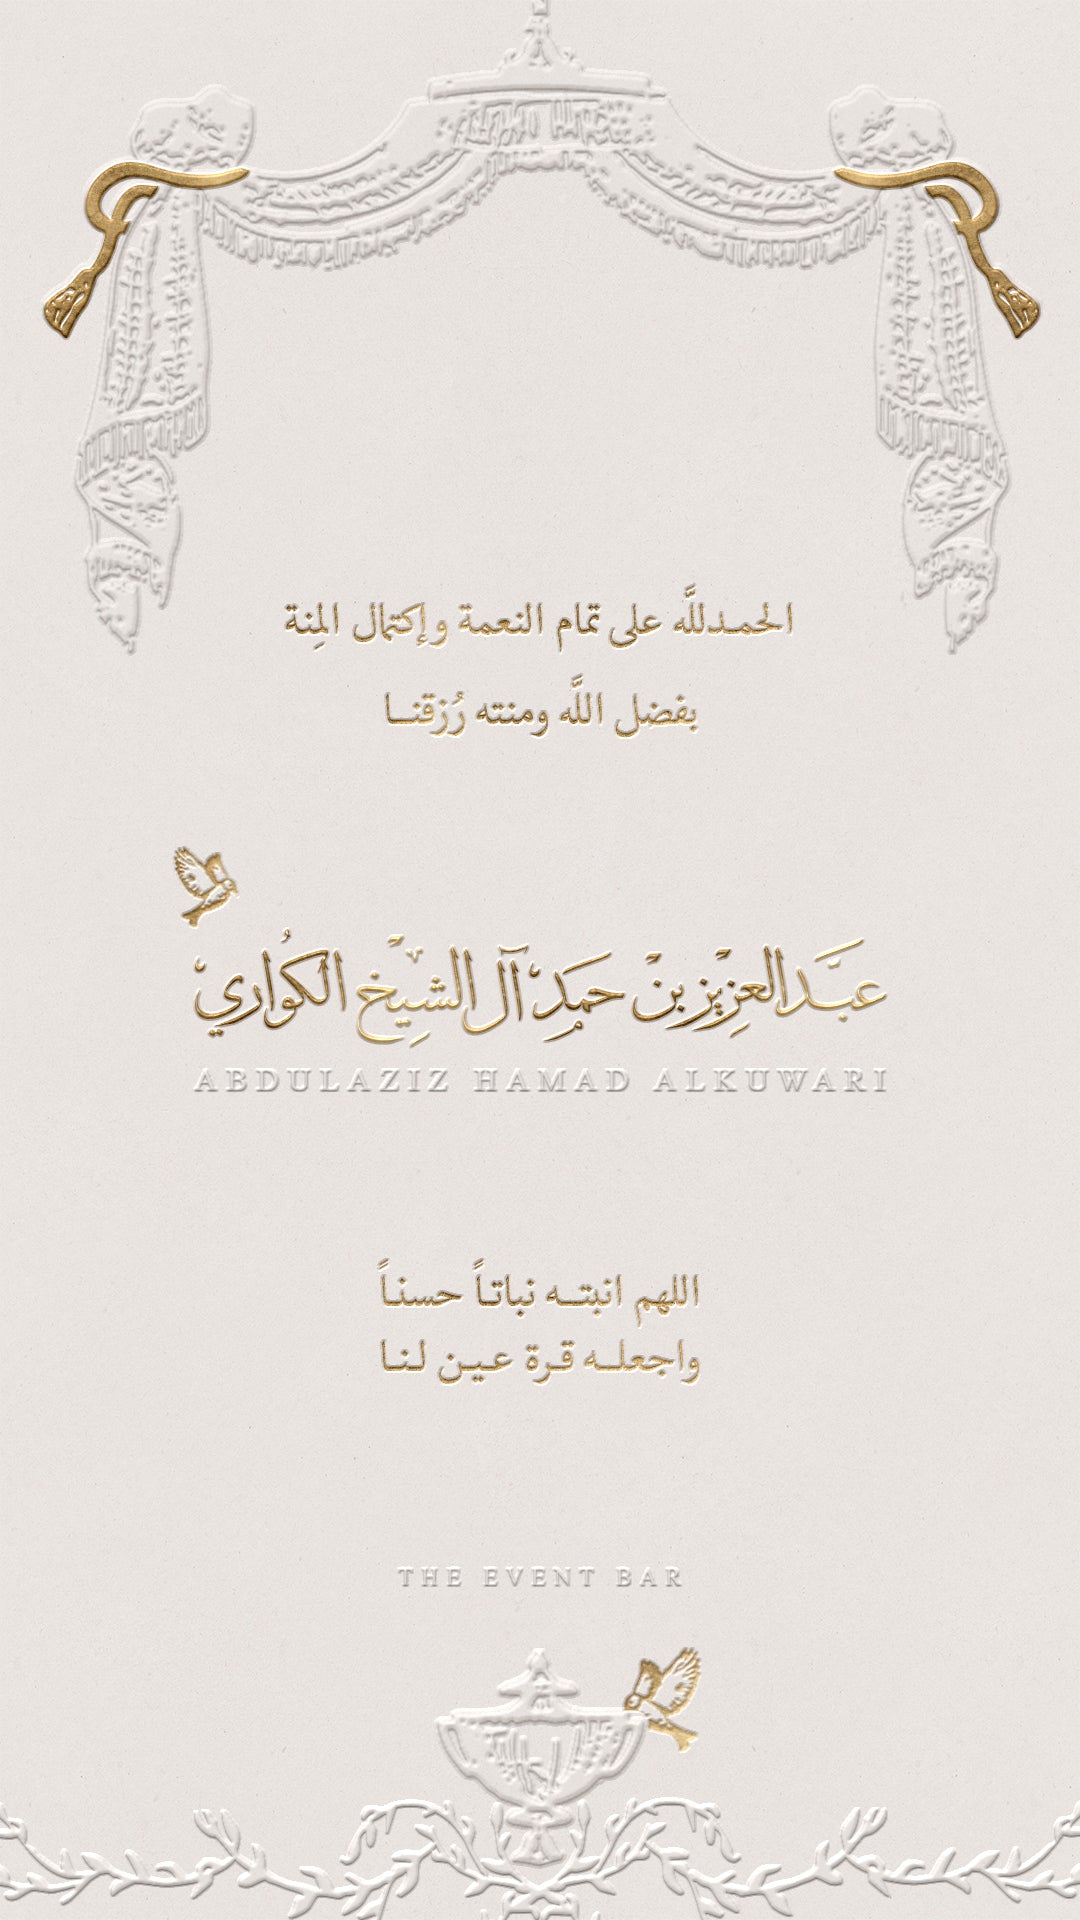 الحمدلله على تمام النعمة وإكتمال المِنة
بفضل الله ومنته رُزقنـا
عبدالعزيز بن حمد آل الشيخ الكواري
ABDULAZIZ HAMAD ALKUWARI
اللهم انبتـه نباتـاً حسنـاً
واجعلـه قـرة عـيـن لـنـا
THE EVENT BAR